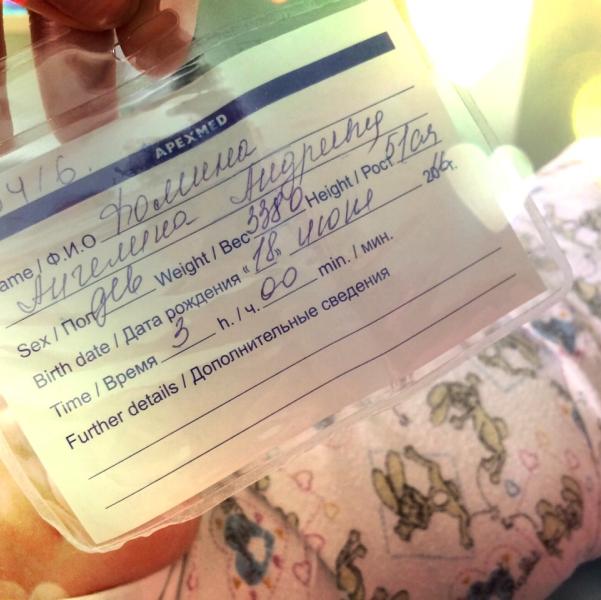 APEXMED
ame / Ф.И.О Фомина
Ангелина Андреевна
Sex / Пол дев Weight / Вес 3380 Height / Рост 51 см
Birth date / Дата рождения "18" июня 2016г.
Time / Время 3 h. / ч. 00 min. / мин.
Further details / Дополнительные сведения